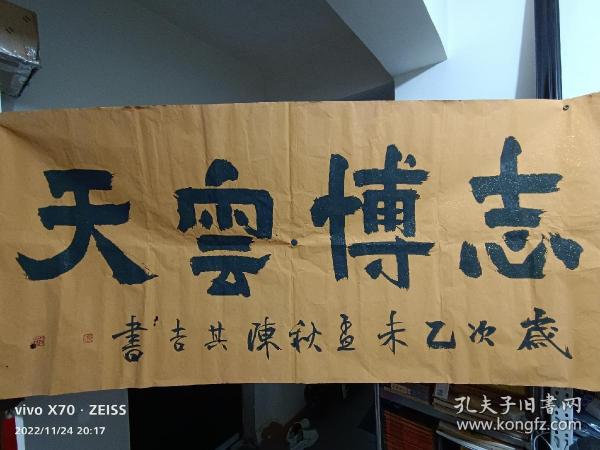 志博雲天
歲次乙未孟秋陳其吉書
vivo X70 · ZEISS
2022/11/24 20:17
孔夫子旧書网
www.kongfz.com